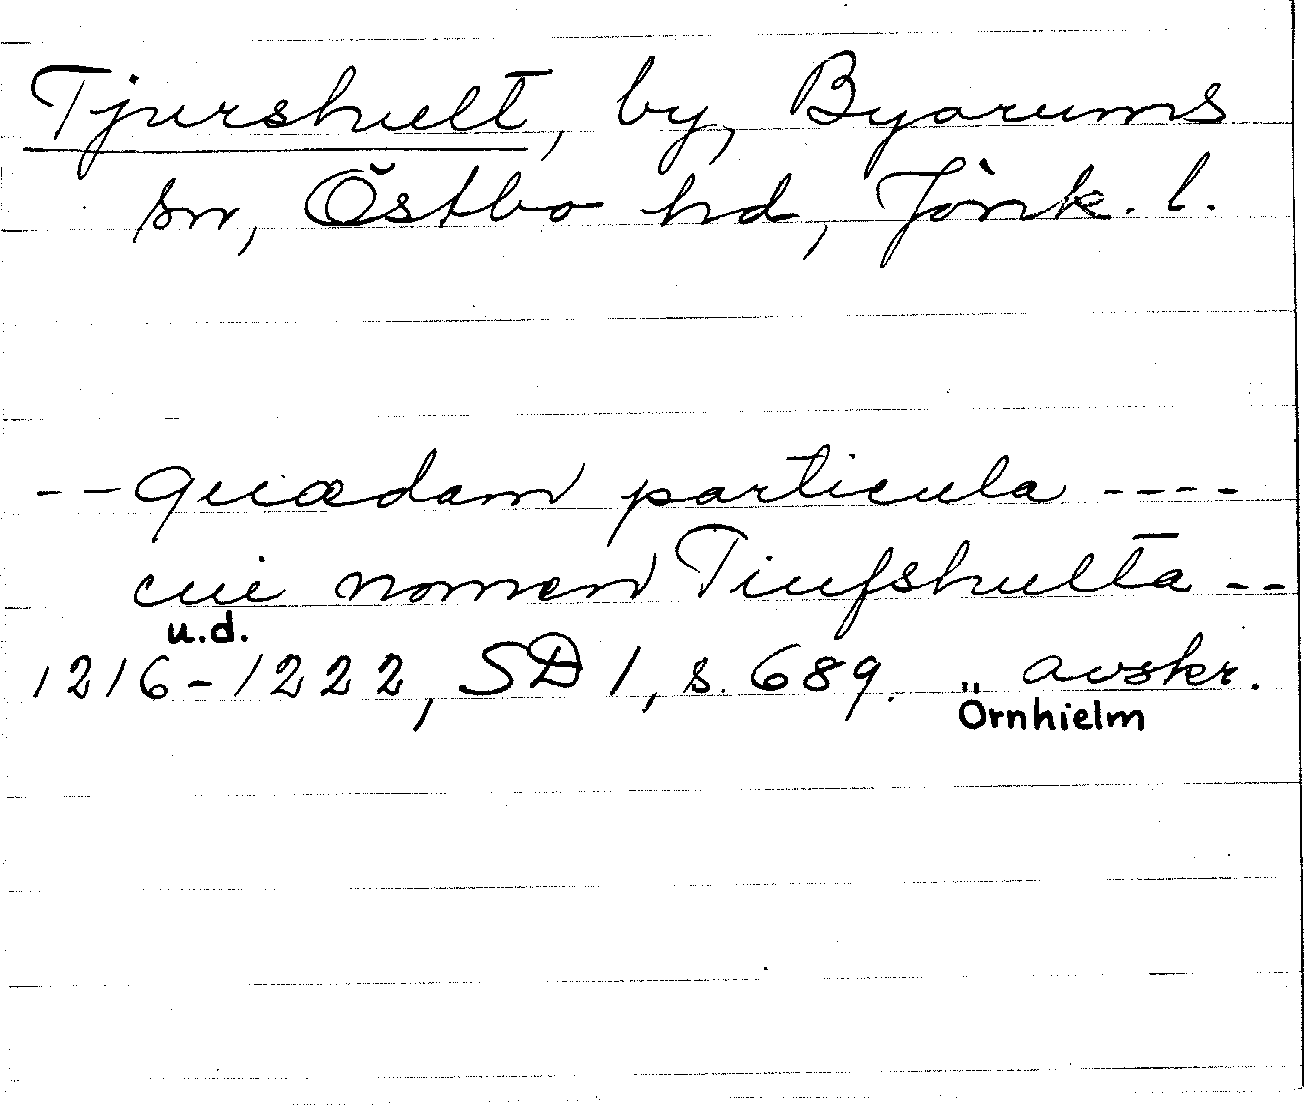 Tjurshult, by, Byarums
sn, Östbo hd, Jönk. l.
-- quædam particula ----
cui nomen Tiufshulta --
u.d.
1216-1222, SD 1, s. 689. avskr.
Örnhielm